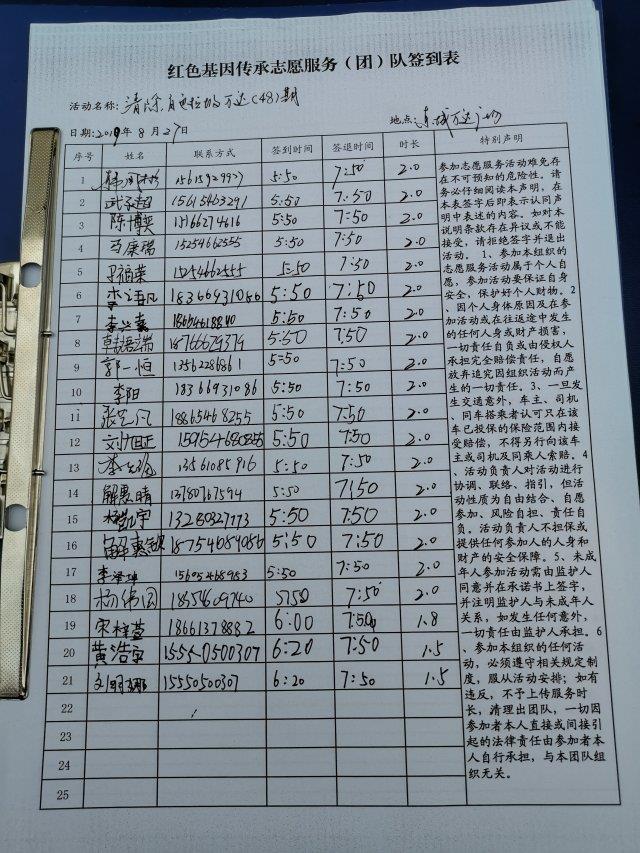 红色基因传承志愿服务（团）队签到表
活动名称：清除 (48)期
日期：2019年8月27日 地点：
序号 姓名 联系方式 签到时间 签退时间 时长 特别声明
1 15615929927 5:50 7:50 2.0
2 武承超 15615463291 5:50 7:50 2.0
3 陈博奕 15166274616 5:50 7:50 2.0
4 马康瑞 15254662555 5:50 7:50 2.0
5 尹福荣 15254662555 5:50 7:50 2.0
6 18366931086 5:50 7:50 2.0
7 5:50 7:50 2.0
8 18766629379 5:50 7:50 2.0
9 郭一恒 13562286861 5:50 7:50 2.0
10 李阳 18366931086 5:50 7:50 2.0
11 18865468255 5:50 7:50 2.0
12 5:50 7:50 2.0
13 13561085916 5:50 7:50 2.0
14 解惠晴 13780767594 5:50 7:50 2.0
15 13280827773 5:50 7:50 2.0
16 18754684086 5:50 7:50 2.0
17 5:50 7:50 2.0
18 杨伟国 18554609740 5:50 7:50 2.0
19 宋梓萱 18661378882 6:00 7:50 1.8
20 黄浩宇 15550500307 6:20 7:50 1.5
21 15550500307 6:20 7:50 1.5
22
23
24
25
参加志愿服务活动难免存
在不可预知的危险性。请
务必仔细阅读本声明，在
本表签字后即表示认同声
明中表述的内容。如对本
说明条款存在异议或不能
接受，请拒绝签字并退出
活动。1、参加本组织的
志愿服务活动属于个人自
愿，参加活动要保证自身
安全，保护好个人财物。2
、因个人身体原因及在参
加活动或在往返途中发生
的任何人身或财产损害，
一切责任自负或由侵权人
承担完全赔偿责任，自愿
放弃追究因组织活动而产
生的一切责任。3、一旦发
生交通意外，车主、司机
、同车搭乘者认可只在该
车已投保的保险范围内接
受赔偿，不得另行向该车
主或司机及同乘人索赔。4
、活动负责人对活动进行
协调、联络、指引，但活
动性质为自由结合、自愿
参加、风险自担、责任自
负。活动负责人不担保或
提供任何参加人的人身和
财产的安全保障。5、未成
年人参加活动需由监护人
同意并在承诺书上签字，
并注明监护人与未成年人
关系，如发生任何意外，
一切责任由监护人承担。6
、参加本组织的任何活
动，必须遵守相关规定制
度，服从活动安排；如有
违反，不予上传服务时
长，清理出团队，一切因
参加者本人直接或间接引
起的法律责任由参加者本
人自行承担，与本团队组
织无关。